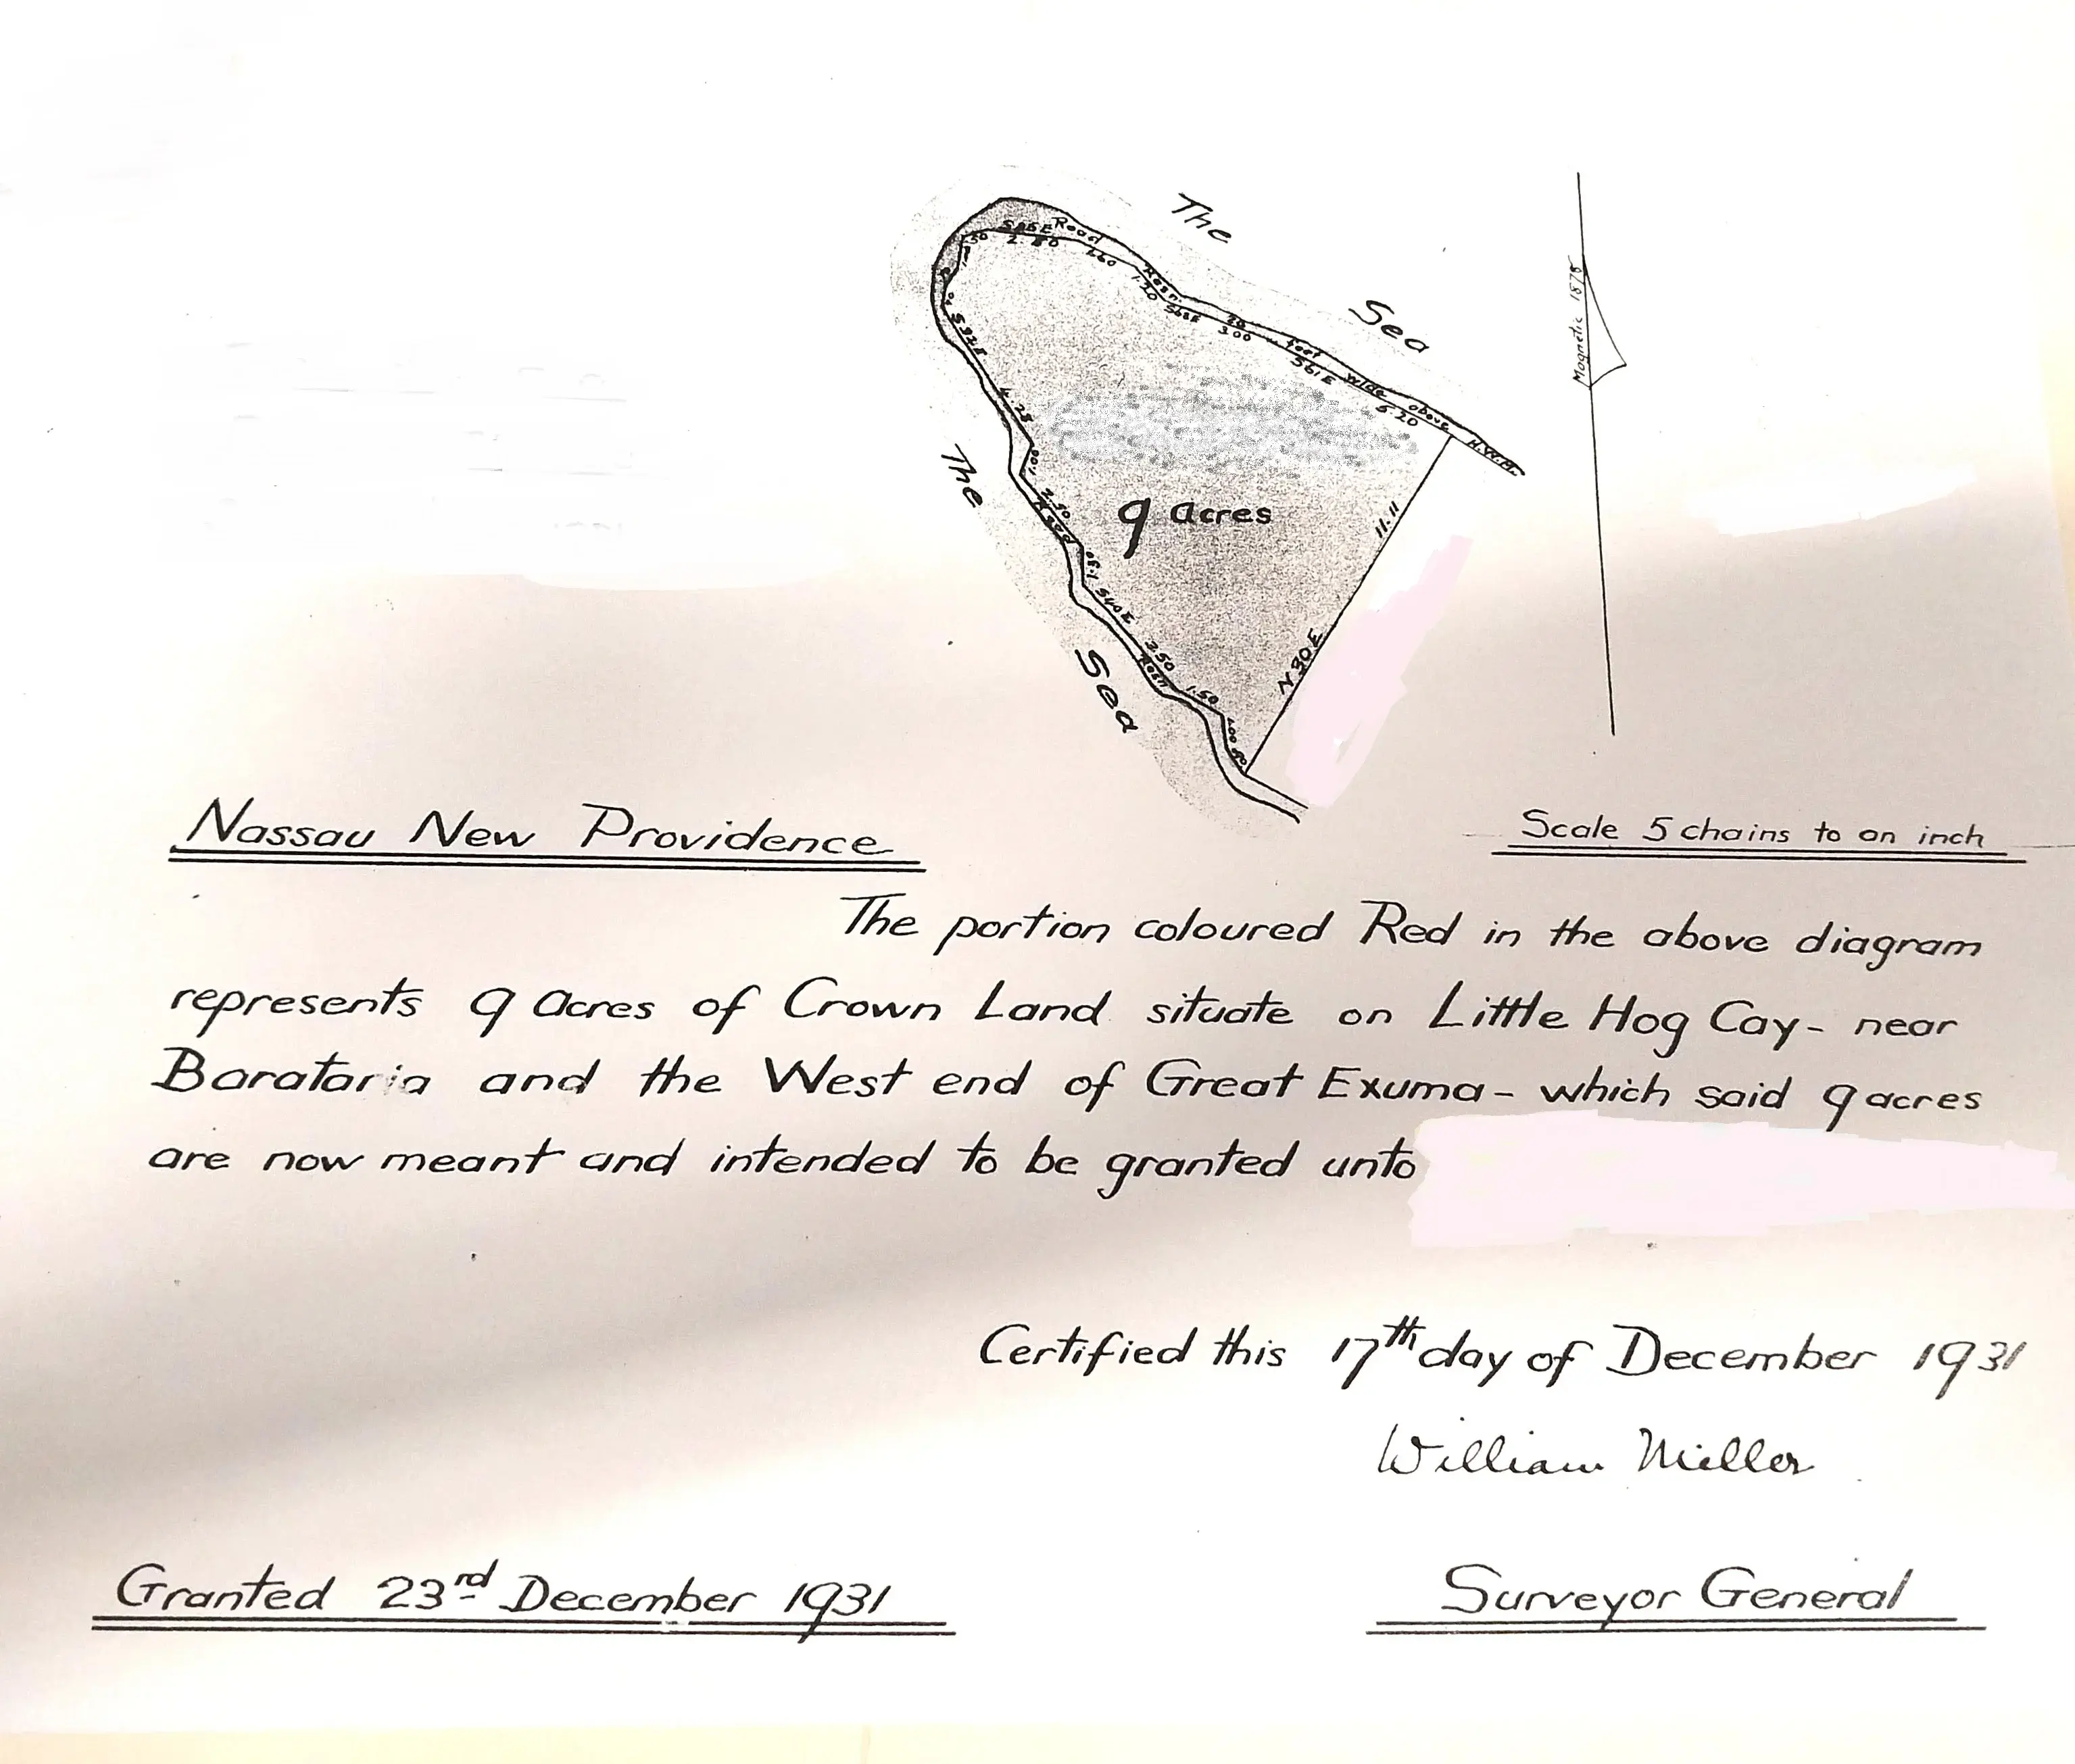 The
Sea
Road
S85E
2.80
1.20
Resn.
S68E
3.00
20
feet
S61E
wide
above
6.20
H.W.M.
Magnetic 1875
S32E
4.28
1.00
2.50
Road
1.30
S40E
3.50
Resn
1.50
The
Sea
9 acres
11.11
N30E
Nassau New Providence
Scale 5 chains to an inch
The portion coloured Red in the above diagram
represents 9 acres of Crown Land situate on Little Hog Cay- near
Barataria and the West end of Great Exuma- which said 9 acres
are now meant and intended to be granted unto
Certified this 17th day of December 1931
William Miller
Granted 23rd December 1931
Surveyor General